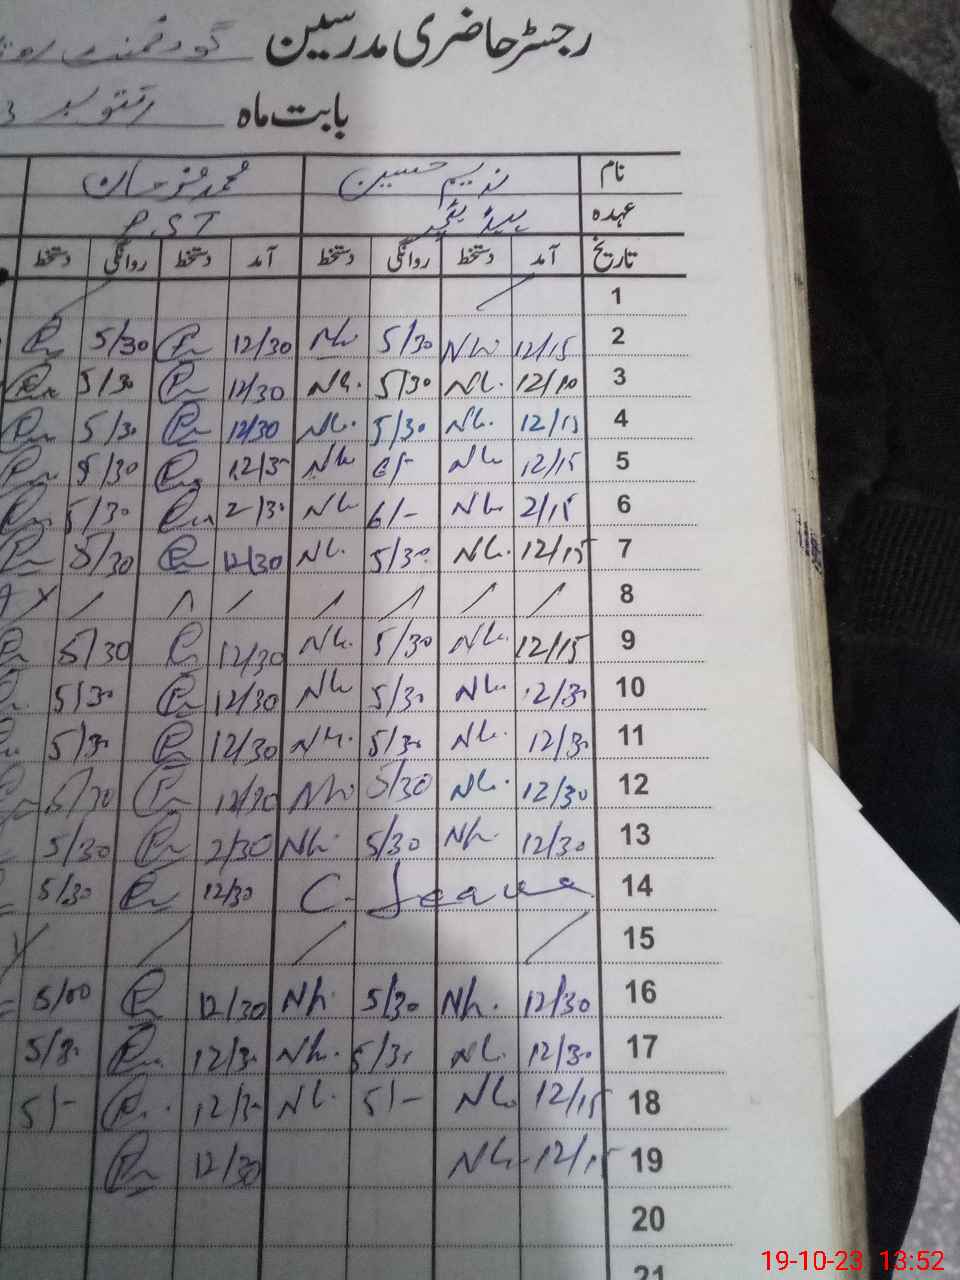 رجسٹر حاضری مدرسین گورنمنٹ
بابت ماہ اکتوبر
نام ندیم حسین محمد
عہدہ ہیڈ ٹیچر P.S.T
تاریخ آمد دستخط روانگی دستخط آمد دستخط روانگی دستخط
1
2 12/15 Nh 5/30 Nh 12/30 5/30
3 12/10 Nh. 5/30 Nh. 12/30 5/30
4 12/15 Nh. 5/30 Nh. 12/30 5/30
5 12/15 Nh 6/- Nh 12/30 5/30
6 2/15 Nh 6/- Nh 2/30 5/30
7 12/15 Nh. 5/30 Nh. 12/30 5/30
8
9 12/15 Nh. 5/30 Nh. 12/30 5/30
10 12/30 Nh. 5/30 Nh 12/30 5/30
11 12/30 Nh. 5/30 Nh. 12/30 5/30
12 12/30 Nh. 5/30 Nh 5/30
13 12/30 Nh. 5/30 Nh. 2/30 5/30
14 C. Leave 12/30 5/30
15
16 12/30 Nh. 5/30 Nh. 12/30 5/00
17 12/30 Nh. 5/30 Nh. 12/30 5/30
18 12/15 Nh. 5/- Nh. 12/30 5/-
19 12/15 Nh. 12/30
20
21
19-10-23 13:52